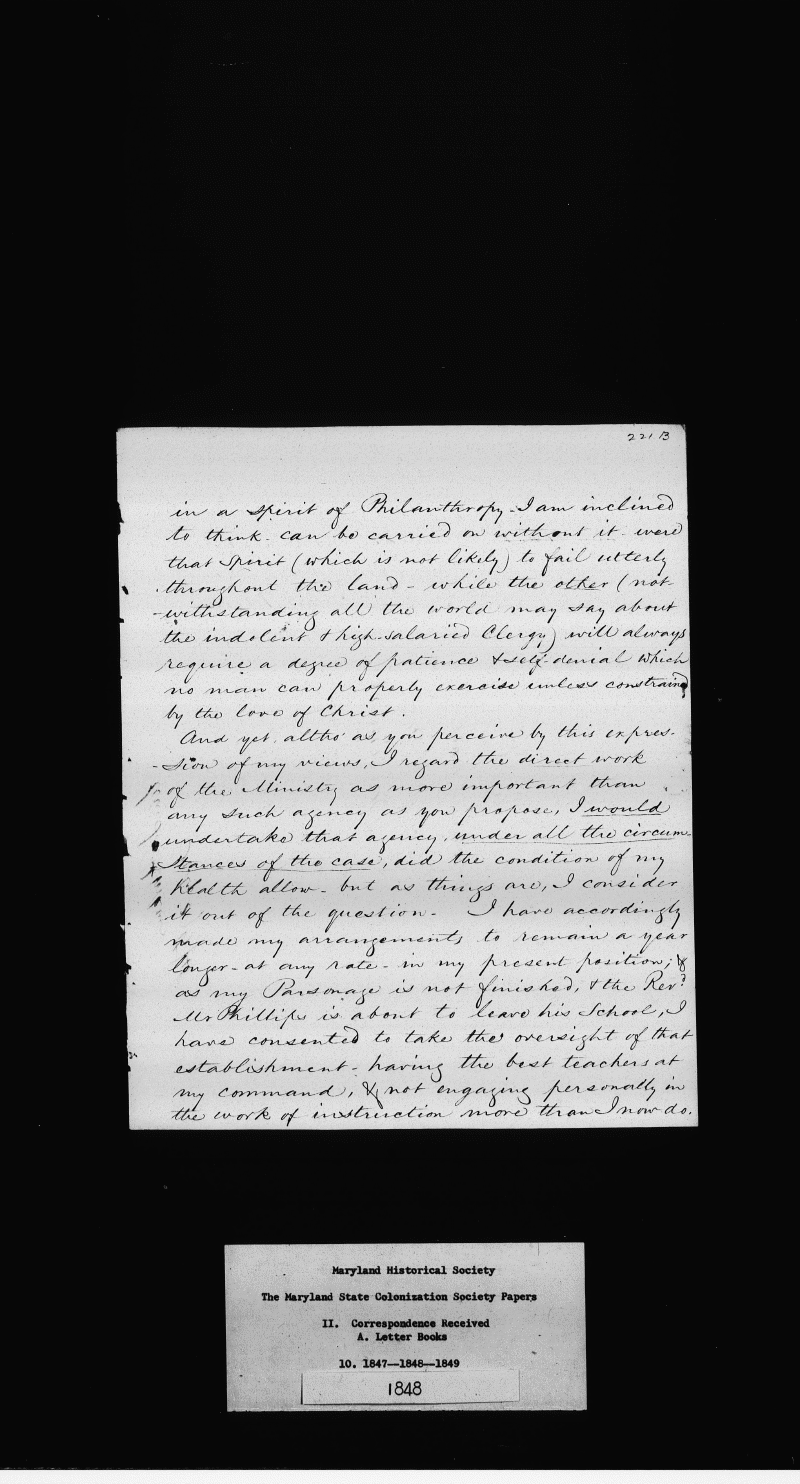 221 B
in a spirit of Philanthropy - I am inclined
to think - can be carried on without it - were
that Spirit (which is not likely) to fail utterly
throughout the land - while the other (not-
-withstanding all the world may say about
the indolent & high-salaried Clergy) will always
require a degree of patience & self-denial which
no man can properly exercise unless constrained
by the love of Christ.
And yet, altho' as you perceive by this expres-
-sion of my views, I regard the direct work
of the Ministry as more important than
any such agency as you propose, I would
undertake that agency, under all the circum-
stances of the case, did the condition of my
health allow - but as things are, I consider
it out of the question. I have accordingly
made my arrangements to remain a year
longer - at any rate - in my present position; &
as my Parsonage is not finished, & the Revd.
Mr Phillips is about to leave his School, I
have consented to take the oversight of that
establishment - having the best teachers at
my command, & not engaging personally in
the work of instruction more than I now do.
Maryland Historical Society
The Maryland State Colonization Society Papers
II. Correspondence Received
A. Letter Books
10. 1847--1848--1849
1848